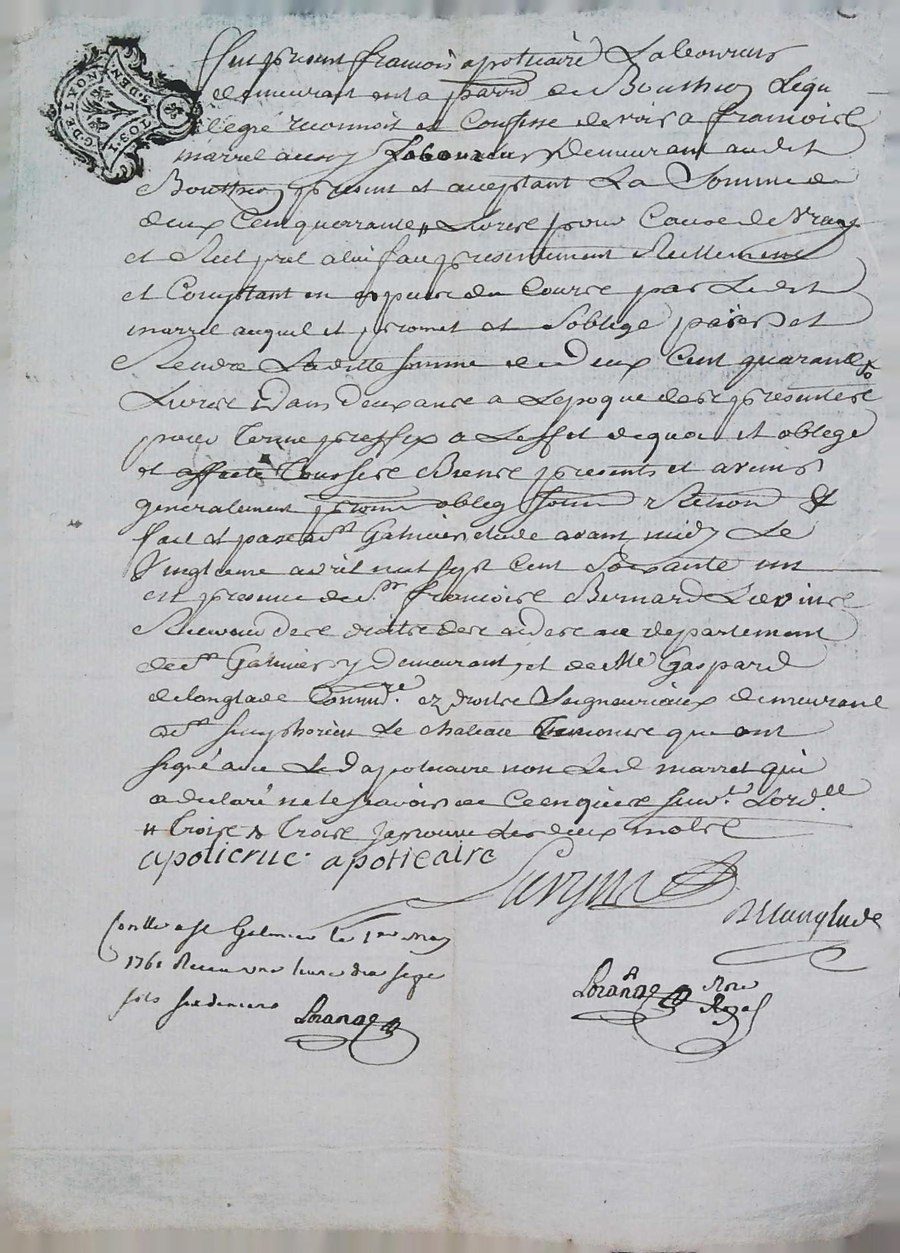 G. DE LYON
SOLS. DEN.
fut present francois apoticaire Laboureur
demeurant en la parr.e de Bouthion Lequ
el de gré reconnoit et Confesse devoir a francoise
marret aussy Laboureur Demeurant audit
Bouthion present et aceptant La Somme de
deux Cent quarante Livres pour Cause de vray
et Reel pret a lui fait presentement Reellement
et Comptant en espece du Cours par Ledit
marret auquel il promet et s'oblige païer et
Rendre Laditte somme de Deux Cent quarante
Livres Dans deux ans a L'epoque des presentes
pour terme preffix a L'effet de quoi il oblige
et affecte tous ses Biens presents et avenir
generalement prom oblig soum Renon &
fait et passé a St Galmier etude avant midy Le
Vingtieme avril mil sept Cent Soixante un
en presence de Sr francoise Bernard Luvine
Receveur des droits des aides au departement
de St Galmier y demeurant, et de Me Gaspard
de Langlade Comm.re ez droits Seigneuriaux demeurant
a St simphorien Le chateau temoins que ont
signé avec Led apoticaire non Led marret qui
a declaré ne le scavoir de Ce enquis suiv.t L'ord.ce
trois & trois Japrouve Les deux mots
apoticaire
Delanglade
Con.llé a St Galmier le 1er may
1761 Receu une livre dix sept
sols six deniers
Loranad
Loranad
Not.
Royal